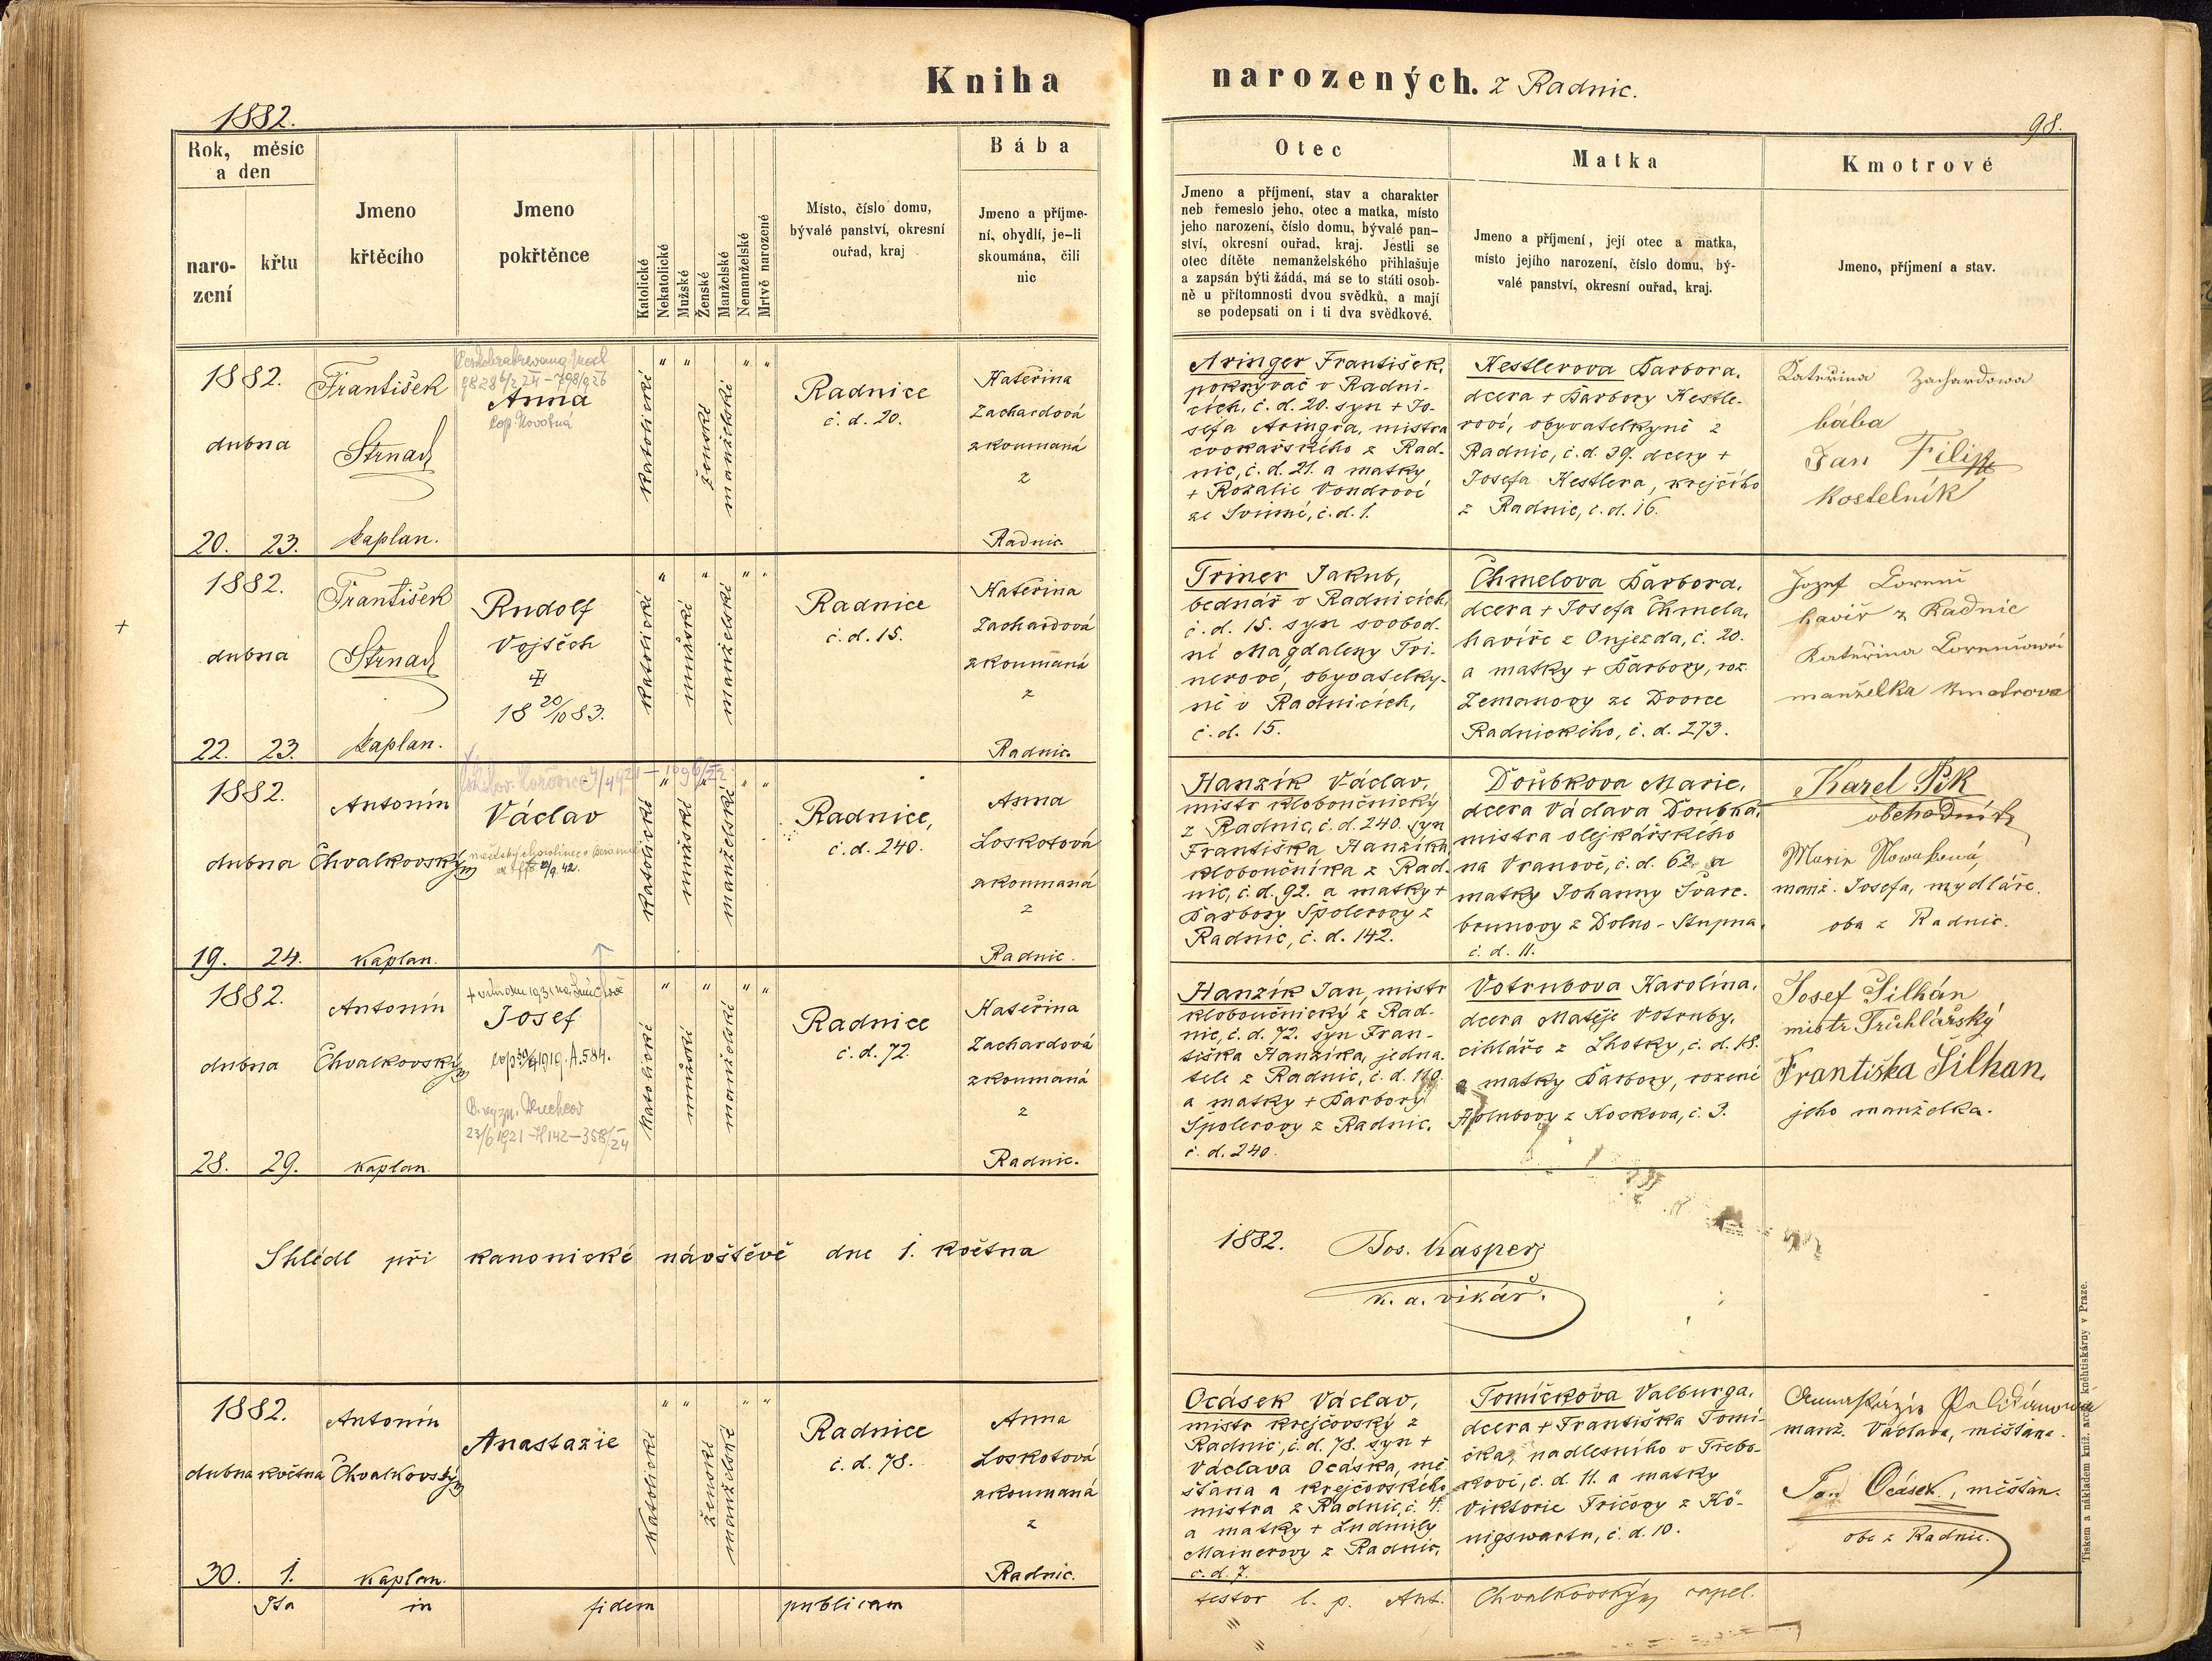 Kniha
narozených. z Radnic.
1882.
98.
Rok, měsíc
a den
naro-
zení
křtu
Jmeno
křtěcího
Jmeno
pokřtěnce
Katolické
Nekatolické
Mužské
Ženské
Manželské
Nemanželské
Mrtvě narozené
Místo, číslo domu,
bývalé panství, okresní
ouřad, kraj
Bába
Jmeno a příjme-
ní, obydlí, je-li
skoumána, čili
nic
Otec
Jmeno a příjmení, stav a charakter
neb řemeslo jeho, otec a matka, místo
jeho narození, číslo domu, bývalé pan-
ství, okresní ouřad, kraj. Jestli se
otec dítěte nemanželského přihlašuje
a zapsán býti žádá, má se to státi osob-
ně u přítomnosti dvou svědků, a mají
se podepsati on i ti dva svědkové.
Matka
Jmeno a příjmení, její otec a matka,
místo jejího narození, číslo domu, bý-
valé panství, okresní ouřad, kraj.
Kmotrové
Jmeno, příjmení a stav.
1882.
dubna
20. 23.
František
Strnad
kaplan.
Anna
cop. Novotná
katolické
ženské
manželské
Radnice
č. d. 20.
Kateřina
Zachardová
zkoumaná
z
Radnic.
Aringer František,
pokrývač v Radni-
cích, č. d. 20. syn + Jo-
sefa Aringra, mistra
cvokařského z Rad-
nic, č. d. 21. a matky
+ Rozalie Vondrové
ze Svinné, č. d. 1.
Kestlerova Barbora,
dcera + Barbory Kestle-
rové, obyvatelkyně z
Radnic, č. d. 39. dcery +
Josefa Kestlera, krejčího
z Radnic, č. d. 16.
Kateřina Zachardowa
bába
Jan Filip
kostelník
1882.
dubna
22. 23.
František
Strnad
kaplan.
Rudolf
Vojtěch
18 20/10 83.
katolické
mužské
manželské
Radnice
č. d. 15.
Kateřina
Zachardová
zkoumaná
z
Radnic.
Triner Jakub,
bednář v Radnicích,
č. d. 15. syn svobod.
né Magdaleny Tri-
nerové, obyvatelky-
ně v Radnicích,
č. d. 15.
Chmelova Barbora,
dcera + Josefa Chmela,
havíře z Onjezda, č. 20.
a matky + Barbory, roz.
Zemanovy ze Dvorce
Radnického, č. d. 273.
Jozef Lorenc
havíř z Radnic
Kateřina
manželka kmotrova
1882.
dubna
19. 24.
Antonín
Chvalkovský
kaplan.
Václav
9/9. 42.
katolické
mužské
manželské
Radnice,
č. d. 240.
Anna
Loskotová
zkoumaná
z
Radnic.
Hanzík Václav,
mistr kloboučnický
z Radnic, č. d. 240. syn
Františka Hanzíka,
kloboučníka z Rad.
nic, č. d. 92. a matky +
Barbory Špolerovy z
Radnic, č. d. 142.
Doubkova Marie,
dcera Václava Doubka,
mistra olejkářského
na Vranově, č. d. 62 a
matky Johanny Švarc-
brunovy z Dolno-Stupna,
č. d. 11.
Karel
obchodník
Marie
manž. Josefa, mydláře.
oba z Radnic.
1882.
dubna
28. 29.
Antonín
Chvalkovský
kaplan.
Josef
1919. A. 584.
23/6 1921
katolické
mužské
manželské
Radnice
č. d. 72.
Kateřina
Zachardová
zkoumaná
z
Radnic.
Hanzík Jan, mistr
kloboučnický z Rad-
nic, č. d. 72. syn Fran-
tiška Hanzíka, jedna-
tele z Radnic, č. d. 110.
a matky + Barbory
Špolerovy z Radnic,
č. d. 240.
Votrubova Karolína,
dcera Matěje Votruby,
cihláře z Lhotky, č. d. 18.
a matky Barbory, rozené
Holubovy z Kockova, č. 3.
Josef Šilhán
mistr Truhlářský
Františka Šilhan,
jeho manželka.
Shlédl při kanonické návštěvě dne 1. května
1882. Jos. Kasper
k. a. vikář.
1882.
dubna května
30. 1.
Antonín
Chvalkovský
kaplan.
Anastazie
katolické
ženské
manželské
Radnice
č. d. 78.
Anna
Loskotová
zkoumaná
z
Radnic.
Ocásek Václav,
mistr krejčovský z
Radnic, č. d. 78. syn +
Václava Ocáska, mě
šťana a krejčovského
mistra z Radnic, č. 4.
a matky + Ludmily
Mainerovy z Radnic,
č. d. 7.
Tomíčkova Valburga,
dcera + Františka Tomí-
čka, nadlesního v Třebo-
kově, č. d. 11. a matky
Viktorie Fričovy z Kö-
nigswartu, č. d. 10.
manž. Václava, měšťana.
Jan Ocásek, měšťan.
oba z Radnic.
Ita in fidem publicam
testor l. p. Ant. Chvalkovský capel.
Tiskem a nákladem kníž. arcib. knihtiskárny v Praze.